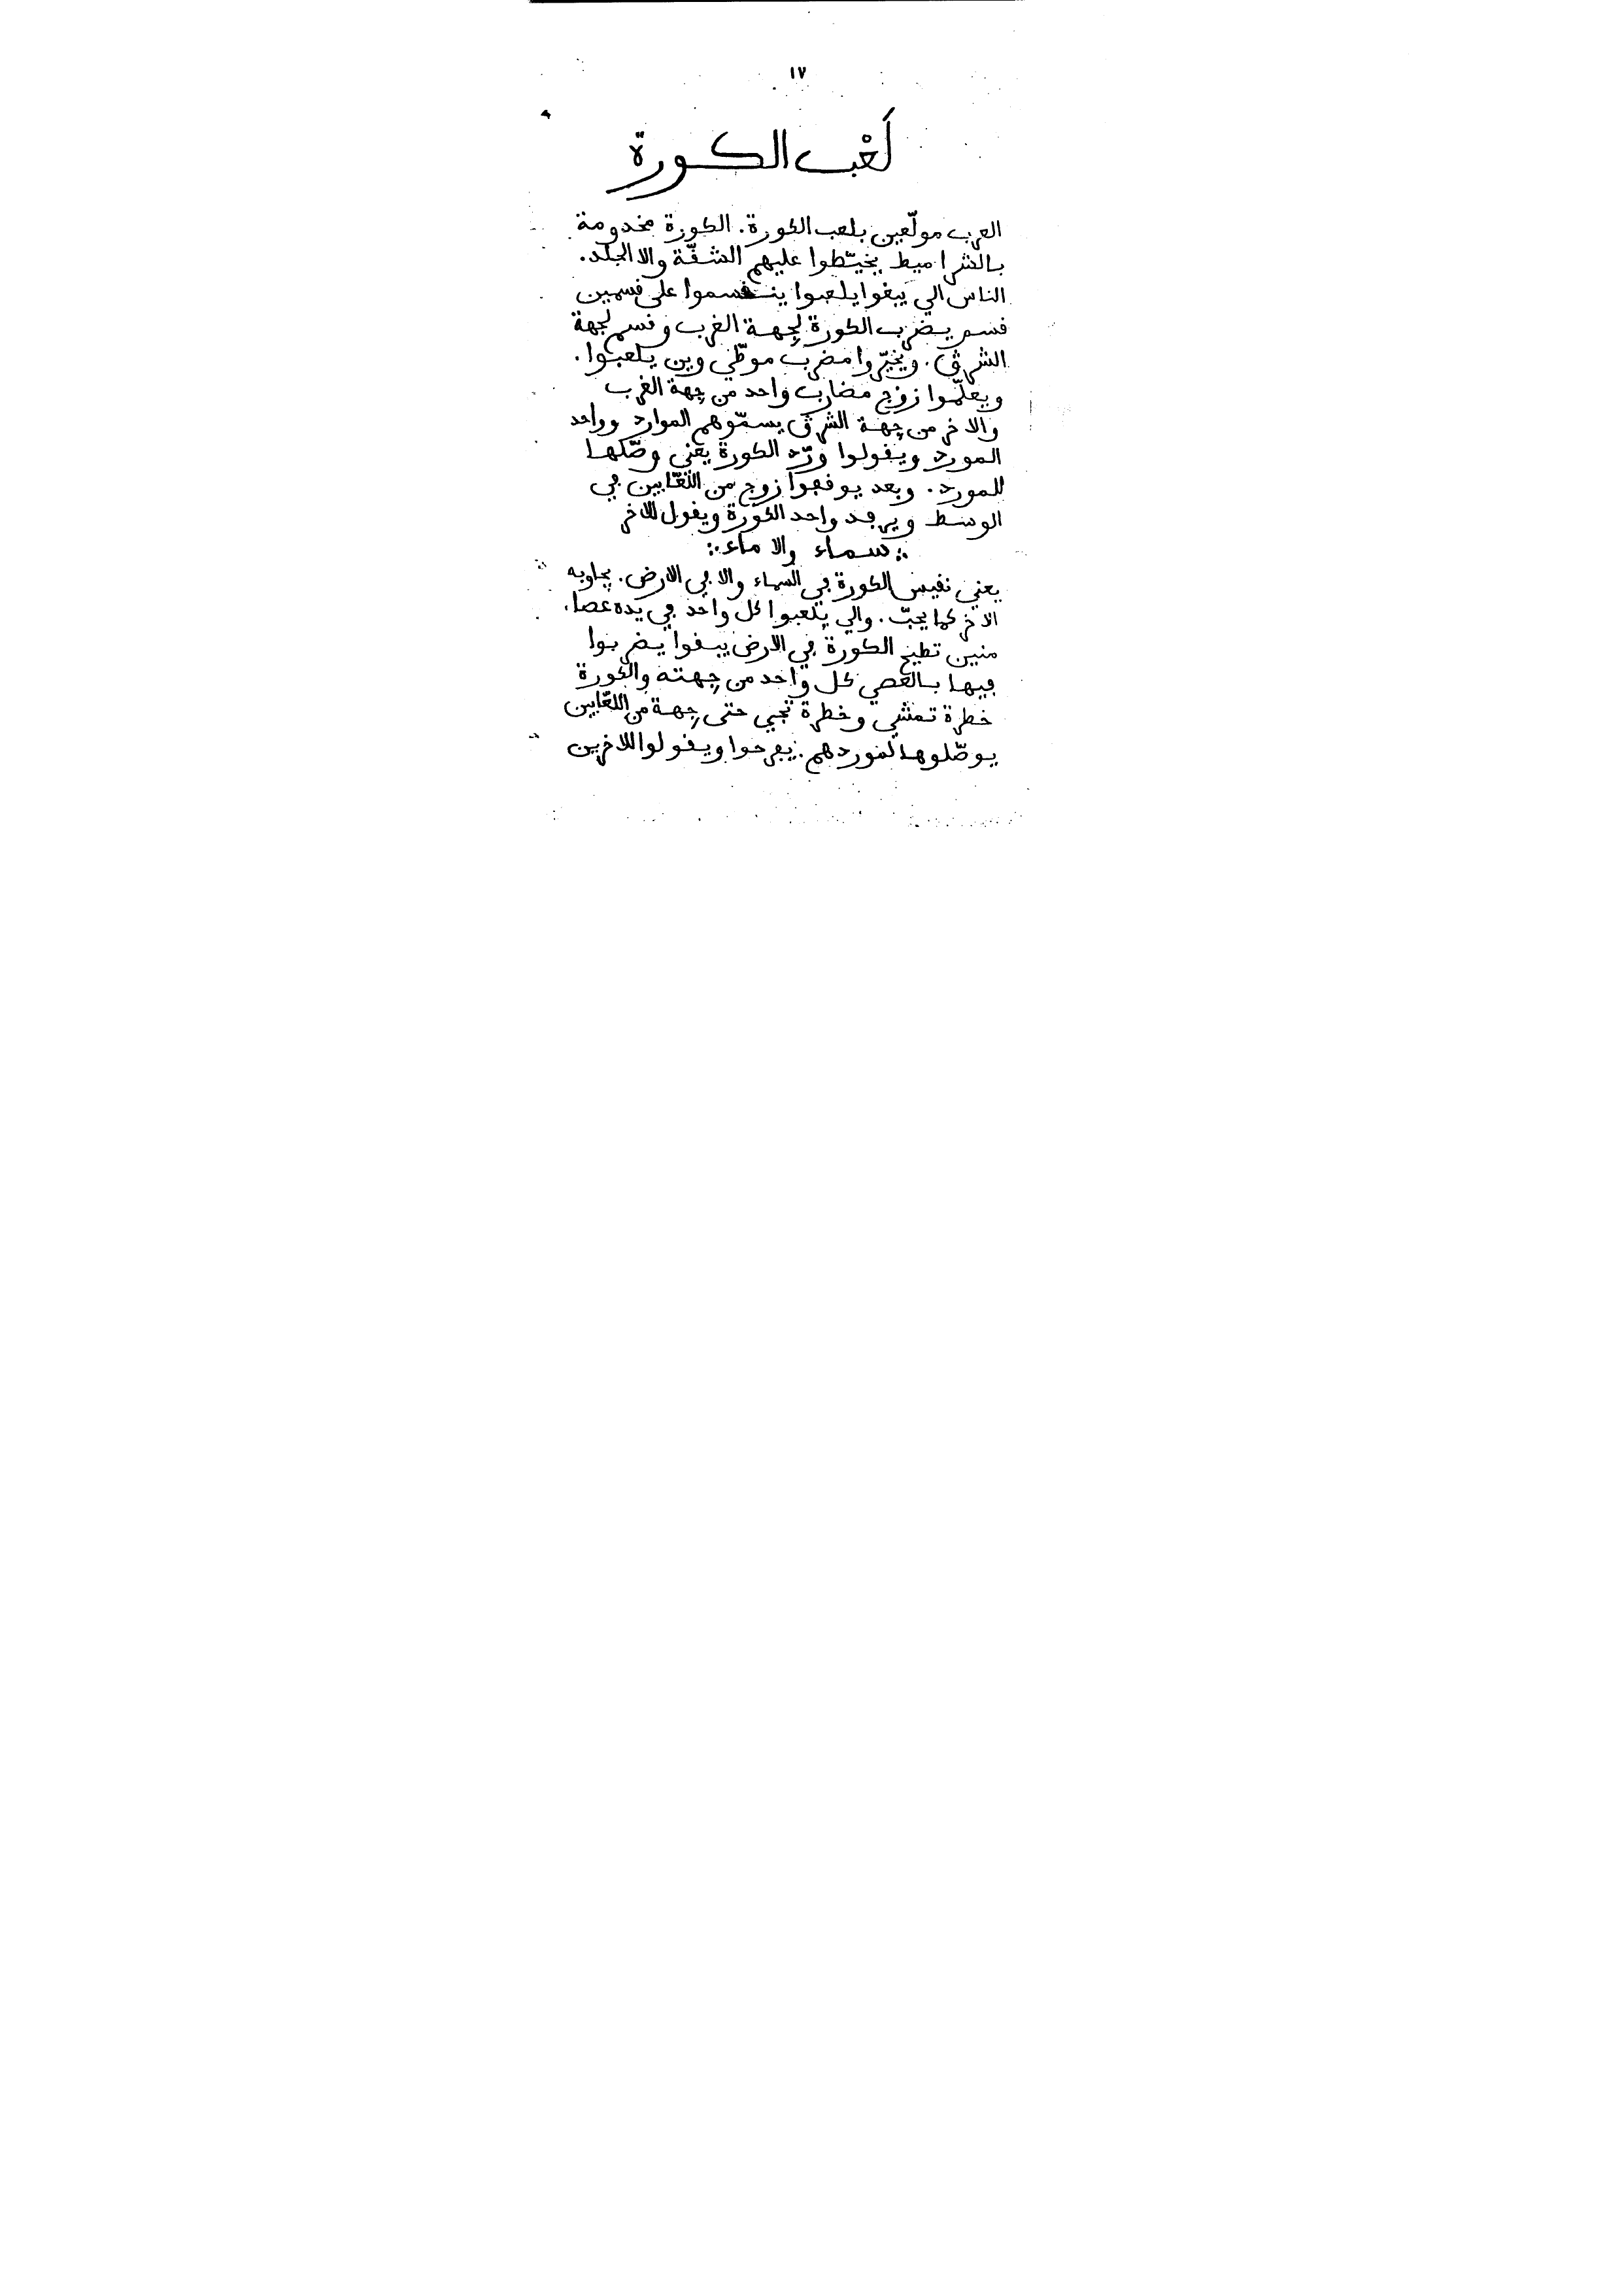 ١٧
لَعْب الكورة
العرب مولّعين بلعب الكورة. الكورة مخدومة
بالشراميط يخيّطوا عليهم الشقّة والا الجلد.
الناس الي يبغوا يلعبوا ينقسموا على قسمين
قسم يضرب الكورة لجهة الغرب وقسم لجهة
الشرق. ويخيّروا مضرب موطّي وين يلعبوا.
ويعلّموا زوج مضارب واحد من جهة الغرب
والاخر من جهة الشرق يسمّوهم الموارد وواحد
المورد ويقولوا ورّد الكورة يعني وصّلها
للمورد. وبعد يوقفوا زوج من اللعّابين في
الوسط ويرفد واحد الكورة ويقول للاخر
سماء والا ماء
يعني نقيس الكورة في السماء والا في الارض. يجاوبه
الاخر كما يحبّ. والي يلعبوا كل واحد في يده عصا.
منين تطيح الكورة في الارض يبقوا يضربوا
فيها بالعصي كل واحد من جهته والكورة
خطرة تمشي وخطرة تجي حتى جهة من اللعّابين
يوصّلوها لموردهم. يفرحوا ويقولوا للاخرين